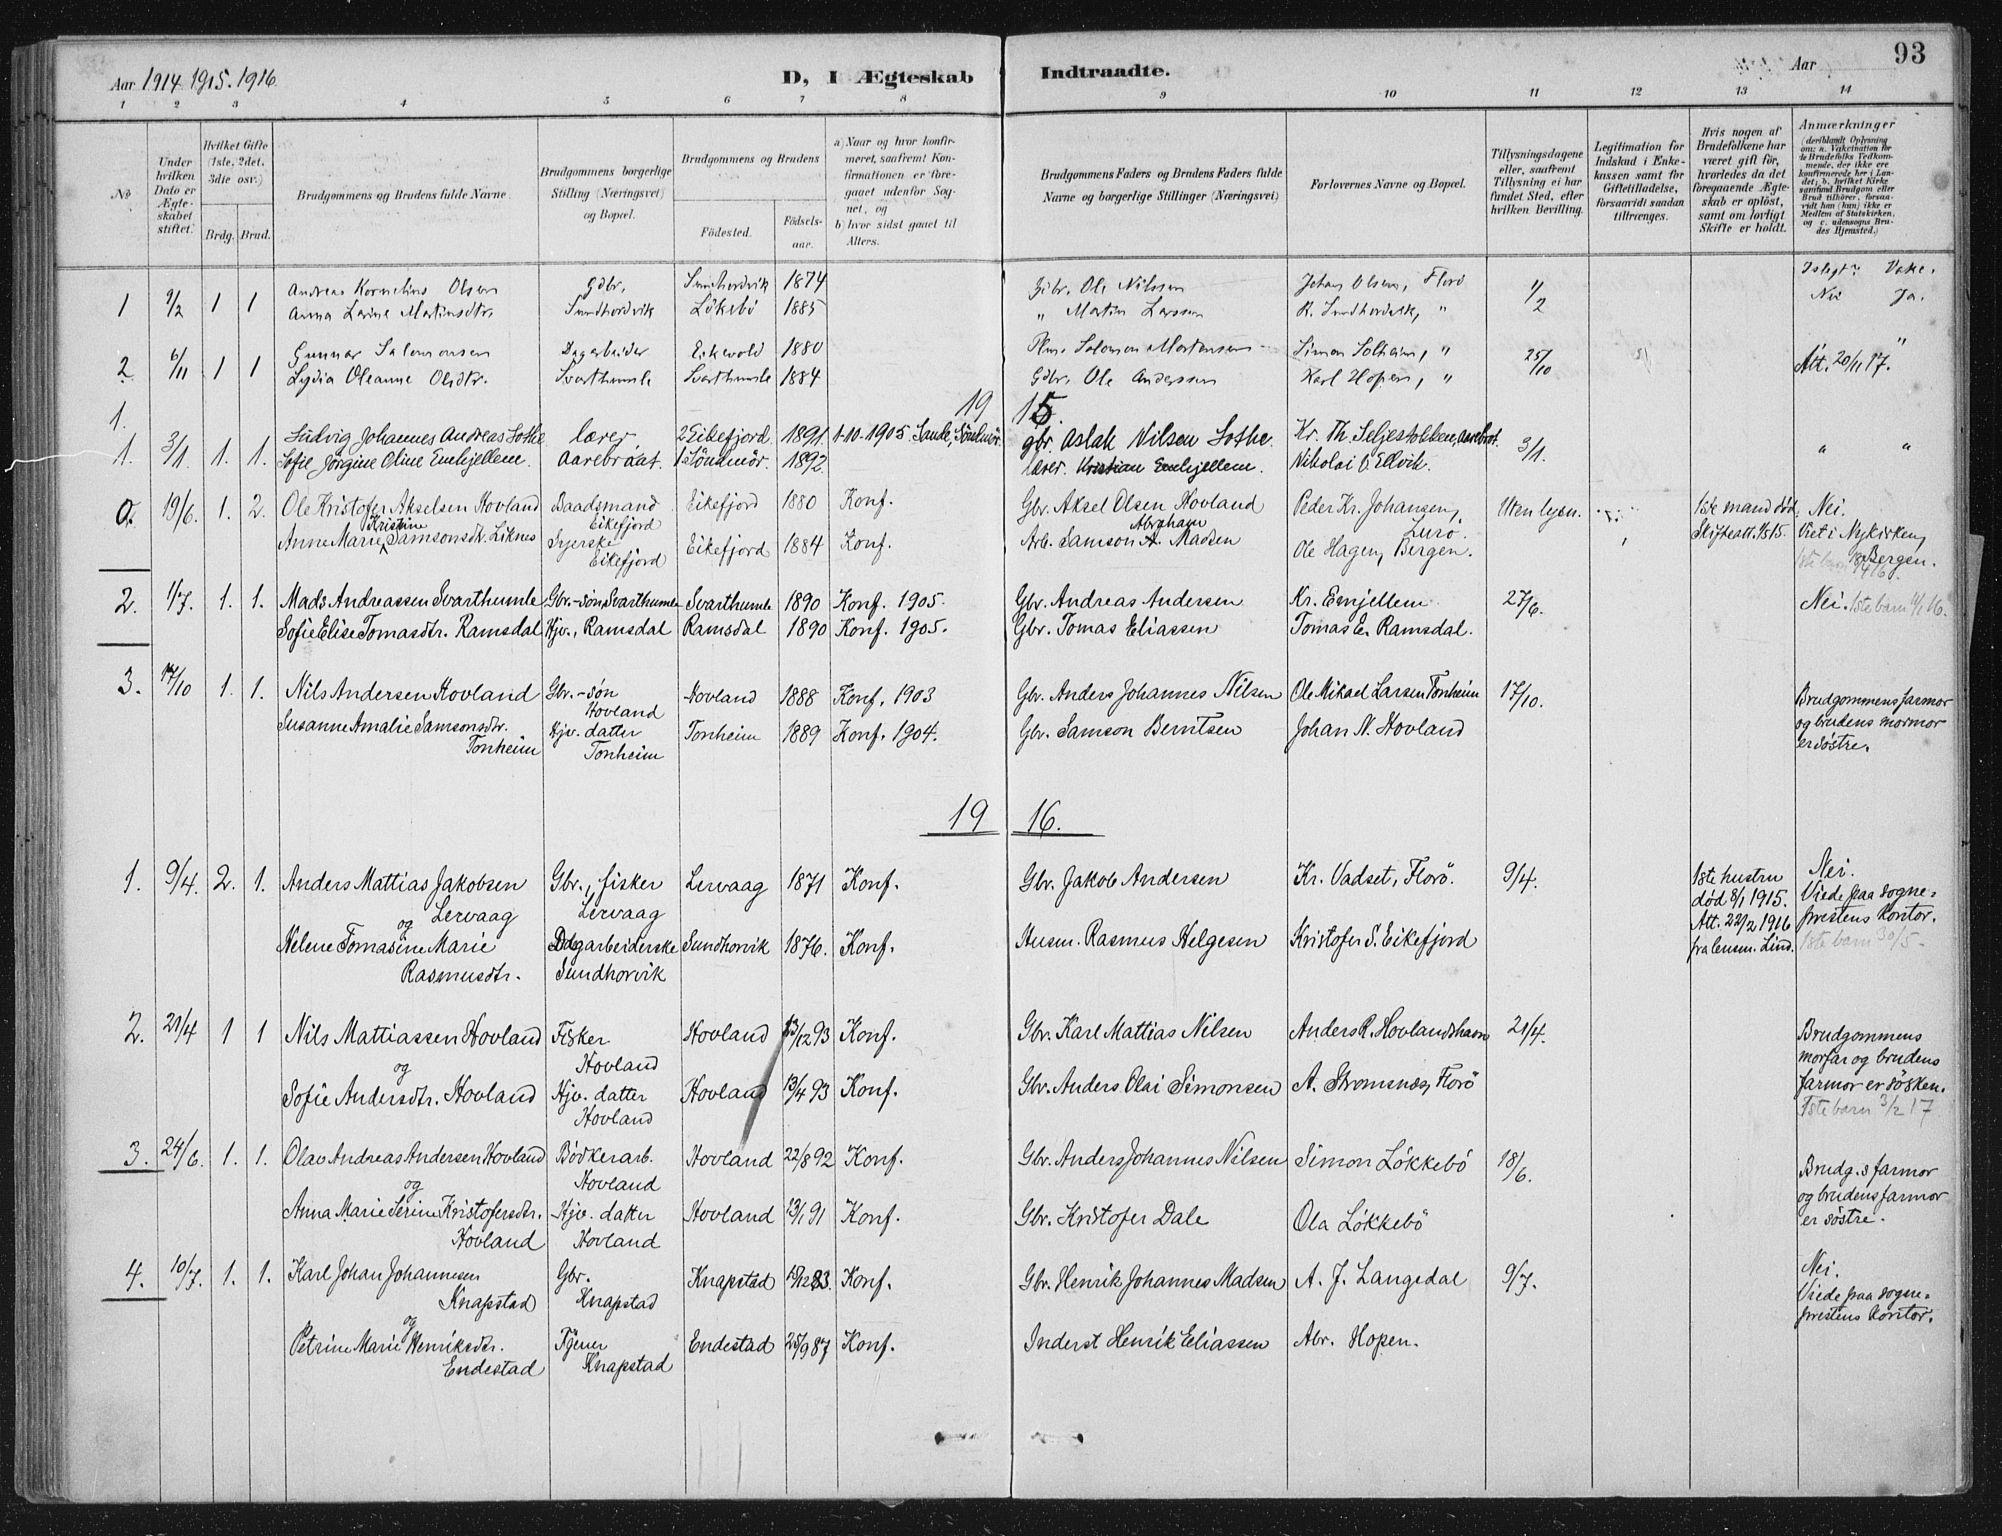 93
Aar 1914 1915. 1916 D, I Ægteskab Indtraadte. Aar
1 2 3 4 5 6 7 8 9 10 11 12 13 14
No
Under hvilken Dato er Ægteskabet stiftet.
Hvilket Gifte (1ste, 2det, 3die osv.)
Brdg. Brud.
Brudgommens og Brudens fulde Navne.
Brudgommens borgerlige Stilling (Næringsvei) og Bopæl.
Brudgommens og Brudens
Fødested. Fødselsaar.
a) Naar og hvor konfirmeret, saafremt Konfirmationen er foregaaet udenfor Sognet, og
b) hvor sidst gaaet til Alters.
Brudgommens Faders og Brudens Faders fulde Navne og borgerlige Stillinger (Næringsvei)
Forlovernes Navne og Bopæl.
Tillysningsdagene eller, saafremt Tillysning ei har fundet Sted, efter hvilken Bevilling.
Legitimation for Indskud i Enkekassen samt for Giftetilladelse, forsaavidt saadan tiltrænges.
Hvis nogen af Brudefolkene har været gift før, hvorledes da det foregaaende Ægteskab er opløst, samt om lovligt Skifte er holdt.
Anmærkninger (deriblandt Oplysning om: a. Vakcination for de Brudefolks Vedkommende, der ikke ere konfirmerede her i Landet; b. hvilket Kirkesamfund Brudgom eller Brud tilhører, forsaavidt han (hun) ikke er Medlem af Statskirken, og c. udensogns Brudes Hjemsted.)
1 9/2 1 1 Andreas Kornelius Olsen Gdbr. Sundhordvik 1874 Gdbr. Ole Nilssen Johan Olsen, Florö 1/2
Anna Larine Martinsdtr. Sundhordvik Lökebö 1885 " Martin Larssen R. Sundhordvik, " Nei Ja.
2 6/11 1 1 Gunnar Salomonsen Dagarbeider Eikevold 1880 Plm. Salomon Mortensen Simon Solheim, " 25/10 Att. 20/11 17. "
Lydia Oleanne Olsdtr. Svarthumle Svarthumle 1884 Gdbr. Ole Anderssen Karl Hopen, "
1. 19 15.
1. 3/1 1. 1. Ludvig Johannes Andreas Sothe lærer 2 Eikefjord 1891. 1-10-1905 Sande, Söndmör. gbr. Aslak Nilsen Sothe. Kr. Th. Seljestokken, aarebrot. 3/1. " "
Sofie Jörgine Oline Emhjellem. Aarebraat. 1 Söndmör. 1892. lærer. Kristian Emhjellem. Nikolai O. Ellvik.
0. 19/6. 1. 2. Ole Kristofer Akselsen Hovland Baadsmand Eikefjord Eikefjord 1880 Konf. Gbr. Aksel Olsen Hovland Peder Kr. Johansen, Lurö. Uten lysn. 1ste mand död, Skifteatt. 1/5 15. Nei. Viet i Nykirken, Bergen.
Anne Marie Kristine Samsonsdtr. Liknes Syerske Eikefjord Eikefjord 1884 Konf. Arb. Samson Abraham A. Madsen Ole Hagen, Bergen.
2. 1/7. 1. 1. Mads Andreassen Svarthumle Gbr.-søn Svarthumle Svarthumle 1890 Konf. 1905. Gbr. Andreas Andersen Kr. Emjellem 27/6. Nei. 1ste barn 4/1 16.
Sofie Elise Tomasdtr. Ramsdal Hjv., Ramsdal Ramsdal 1890 Konf. 1905. Gbr. Tomas Eliassen Tomas E. Ramsdal.
3. 17/10 1. 1. Nils Andersen Hovland Gbr.-søn Hovland Hovland 1888 Konf. 1903 Gbr. Anders Johannes Nilsen Ole Mikael Larsen Tonheim 17/10. Brudgommens farmor og brudens mormor er søstre.
Susanne Amalie Samsonsdtr. Tonheim Hjv. datter Tonheim Tonheim 1889 Konf. 1904. Gbr. Samson Berntsen Johan N. Hovland
19 16.
1. 9/4. 2. 1. Anders Mattias Jakobsen Lervaag Gbr., fisker Lervaag Lervaag 1871 Konf. Gbr. Jakob Andersen Kr. Vadset, Florö. 9/4. 1ste hustru død 8/1 1915. Att. 22/2 1916 fra lensm. Lind. Nei. Viede paa sogneprestens kontor. 1ste barn 30/5-
og
Nelene Tomasine Marie Rasmusdtr. Dagarbeiderske Sundhorvik Sundhorvik 1876. Konf. Husm. Rasmus Helgesen Kristofer S. Eikefjord
2. 21/4 1 1 Nils Mattiassen Hovland Fisker Hovland Hovland 13/12 93 Konf. Gbr. Karl Mattias Nilsen Anders R. Hovlandshavn 21/4. Brudgommens morfar og brudens farmor er søsken. 1ste barn 3/2 17
og
Sofie Andersdtr. Hovland Hjv. datter Hovland Hovland 13/4 93 Konf. Gbr. Anders Olai Simonsen A. Stromsnes, Florö
3. 24/6. 1. 1. Olav Andreas Andersen Hovland Bødkerarb. Hovland Hovland 22/8 92 Konf. Gbr. Anders Johannes Nilsen Simon Løkkebö 18/6. Brudg.s farmor og brudens farmor er søstre.
og
Anna Marie Serine Kristofersdtr. Hovland Hjv. datter Hovland Hovland 13/1 91 Konf. Gbr. Kristofer Dale Ola Løkkebö
4. 10/7. 1. 1. Karl Johan Johannesen Knapstad Gbr. Knapstad Knapstad 19/12 83. Konf. Gbr. Henrik Johannes Madsen A. J. Langedal 9/7. Nei. Viede paa sogneprestens kontor.
og
Petrine Marie Henriksdtr. Endestad Tjener Knapstad Endestad 25/9 87 Konf. Inderst Henrik Eliassen Abr. Hopen.